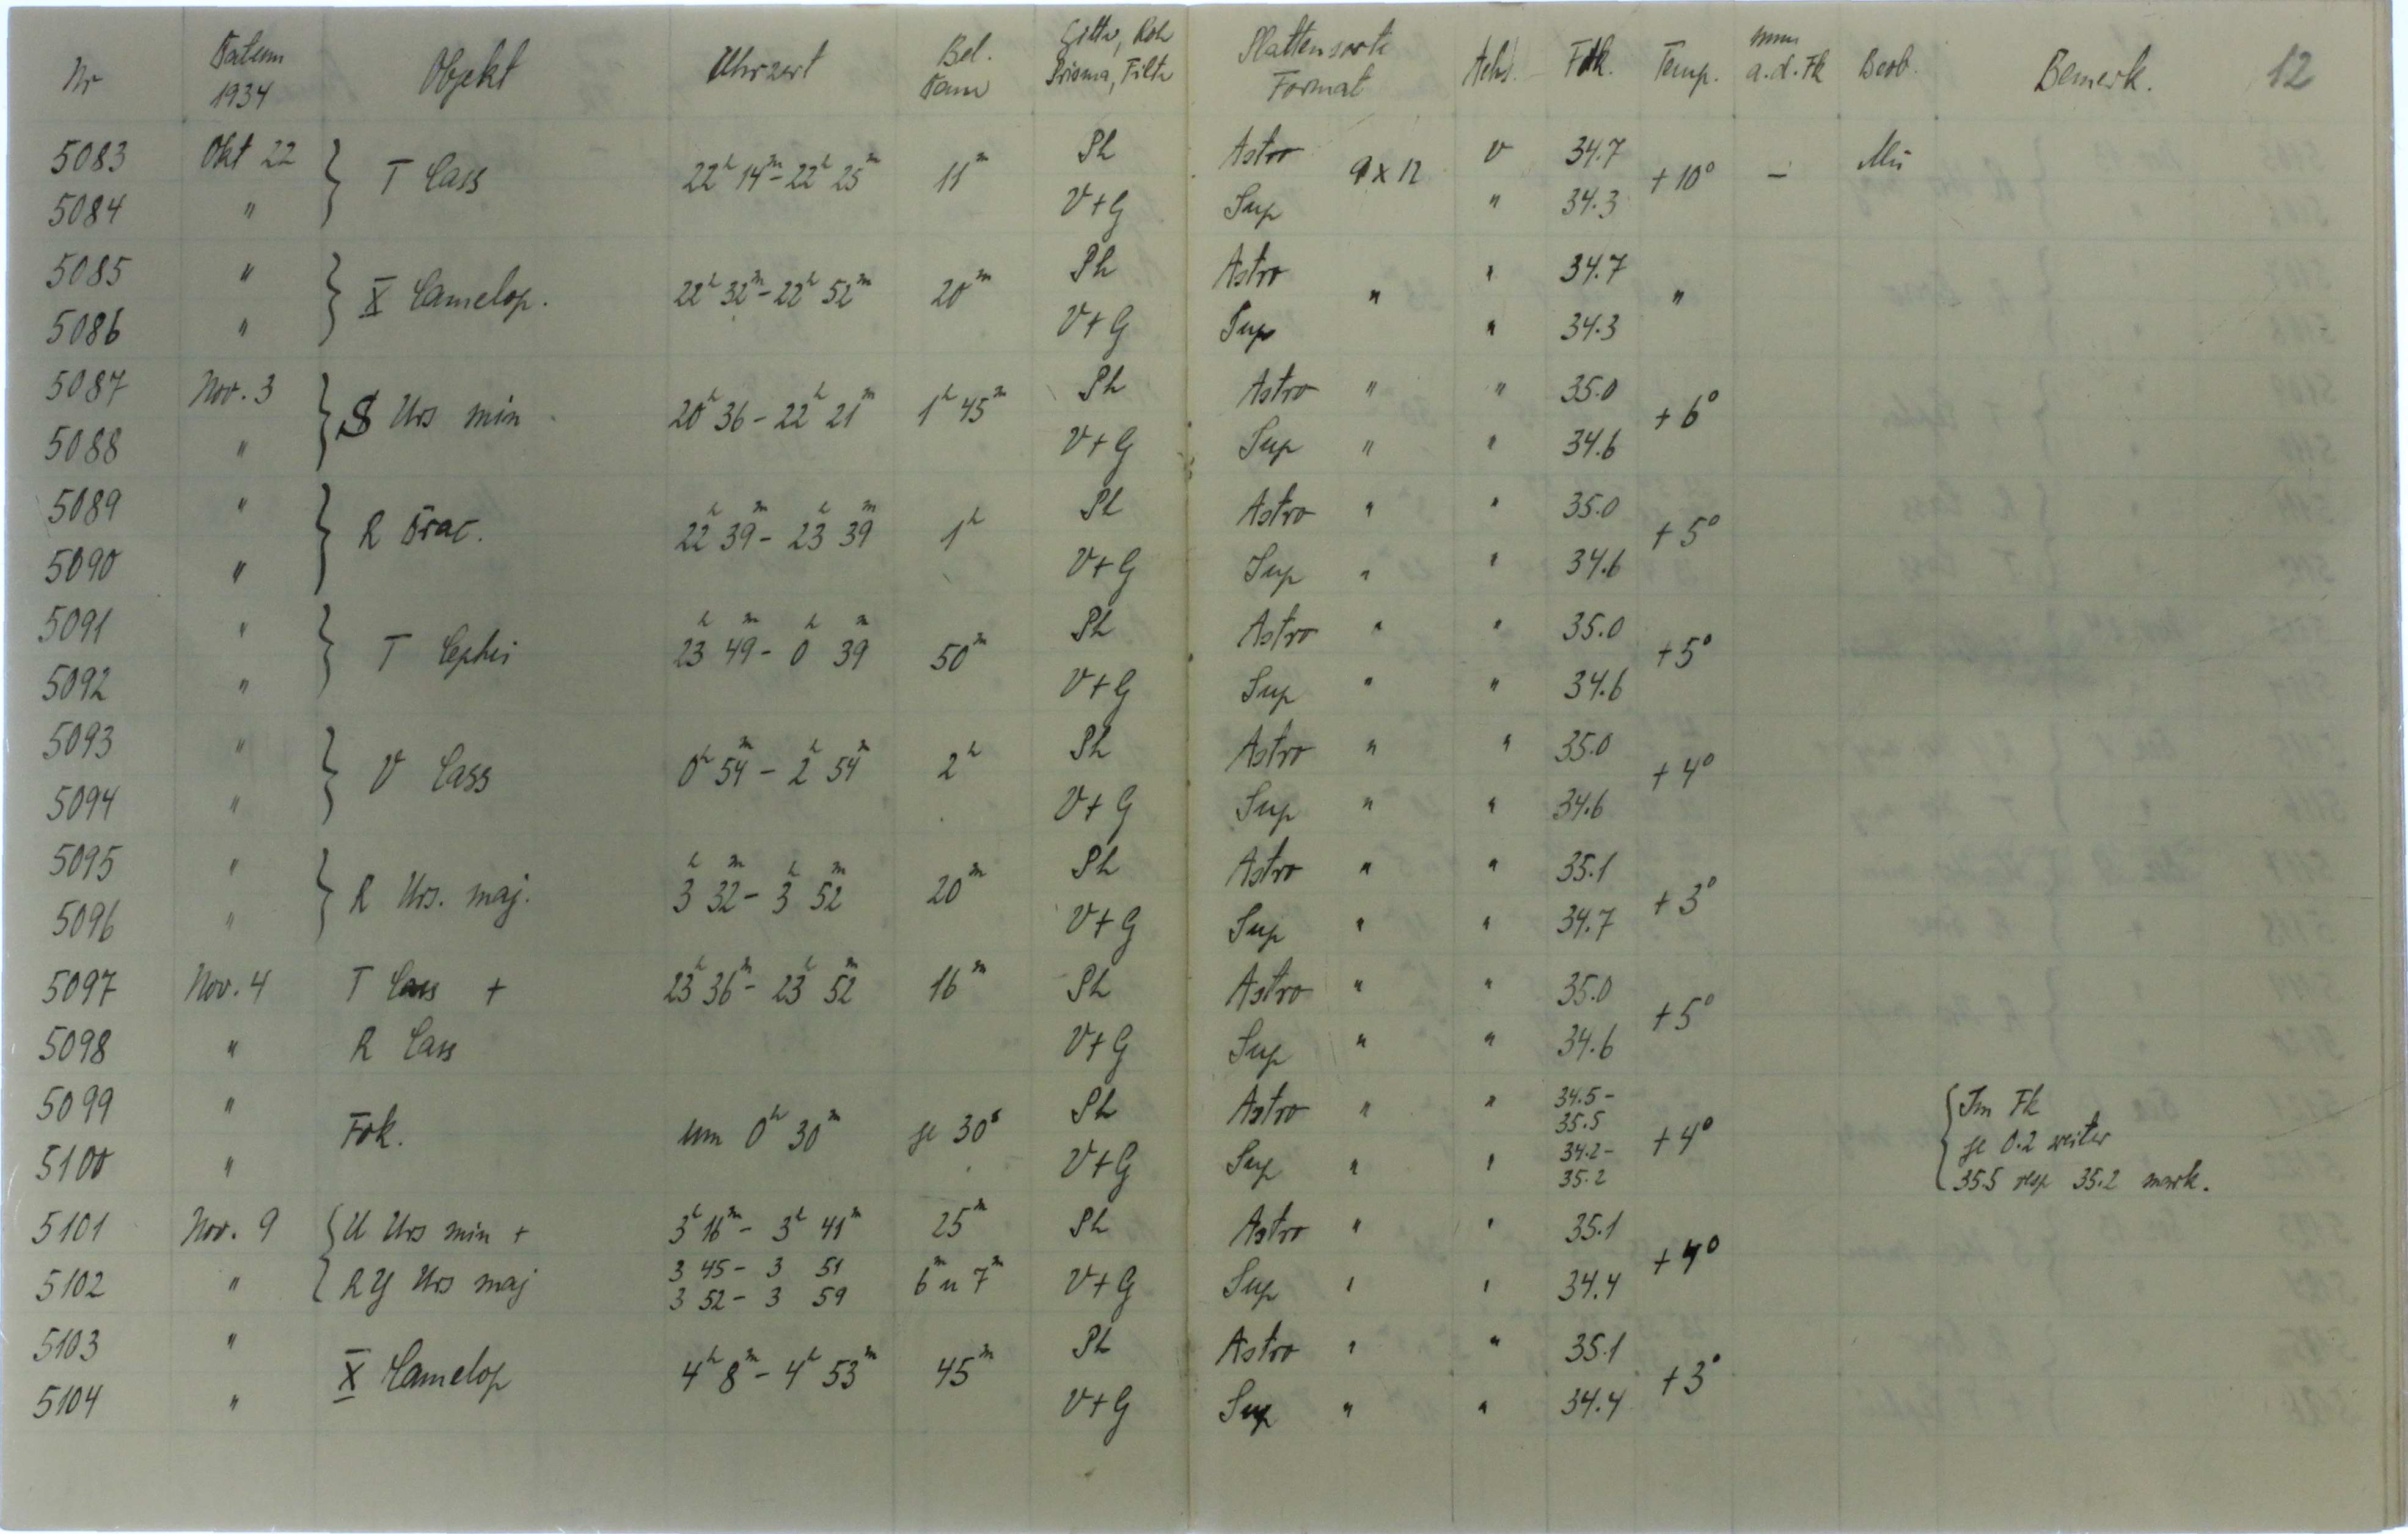 Nr Datum 1934 Objekt Uhrzeit Bel. Dau Gitter, Roh Prisma, Filtr Plattensorte Format Achs. Fok. Temp. mm a.d. Fk Beob. Bemerk. 12
5083 Okt 22 } T Cass 22h 14m - 22h 25m 11m Ph Astro 9 x 12 v 34.7 +10° - Mü
5084 " V+G Sup " 34.3
5085 " } X Camelop. 22h 32m - 22h 52m 20m Ph Astro " " 34.7 "
5086 " V+G Sup " 34.3
5087 Nov. 3 } S Urs min 20h 36 - 22h 21m 1h 45m Ph Astro " " 35.0 +6°
5088 " V+G Sup " " 34.6
5089 " } R Drac. 22h 39m - 23h 39m 1h Ph Astro " " 35.0 +5°
5090 " V+G Sup " " 34.6
5091 " } T Cephei 23h 49m - 0h 39m 50m Ph Astro " " 35.0 +5°
5092 " V+G Sup " " 34.6
5093 " } V Cass 0h 54m - 2h 54m 2h Ph Astro " " 35.0 +4°
5094 " V+G Sup " " 34.6
5095 " } R Urs. maj. 3h 32m - 3h 52m 20m Ph Astro " " 35.1 +3°
5096 " V+G Sup " " 34.7
5097 Nov. 4 T Cass + 23h 36m - 23h 52m 16m Ph Astro " " 35.0 +5°
5098 " R Cass V+G Sup " " 34.6
5099 " Fok. um 0h 30m je 30s Ph Astro " " 34.5 - 35.5 +4° { Im Fk
je 0.2 weiter
5100 " V+G Sup " " 34.2 - 35.2 35.5 resp 35.2 mark.
5101 Nov. 9 { U Urs min + 3h 16m - 3h 41m 25m Ph Astro " " 35.1 +4°
5102 " RY Urs maj 3 45 - 3 51 6m u 7m V+G Sup " " 34.4
3 52 - 3 59
5103 " X Camelop 4h 8m - 4h 53m 45m Ph Astro " " 35.1 +3°
5104 " V+G Sup " " 34.4